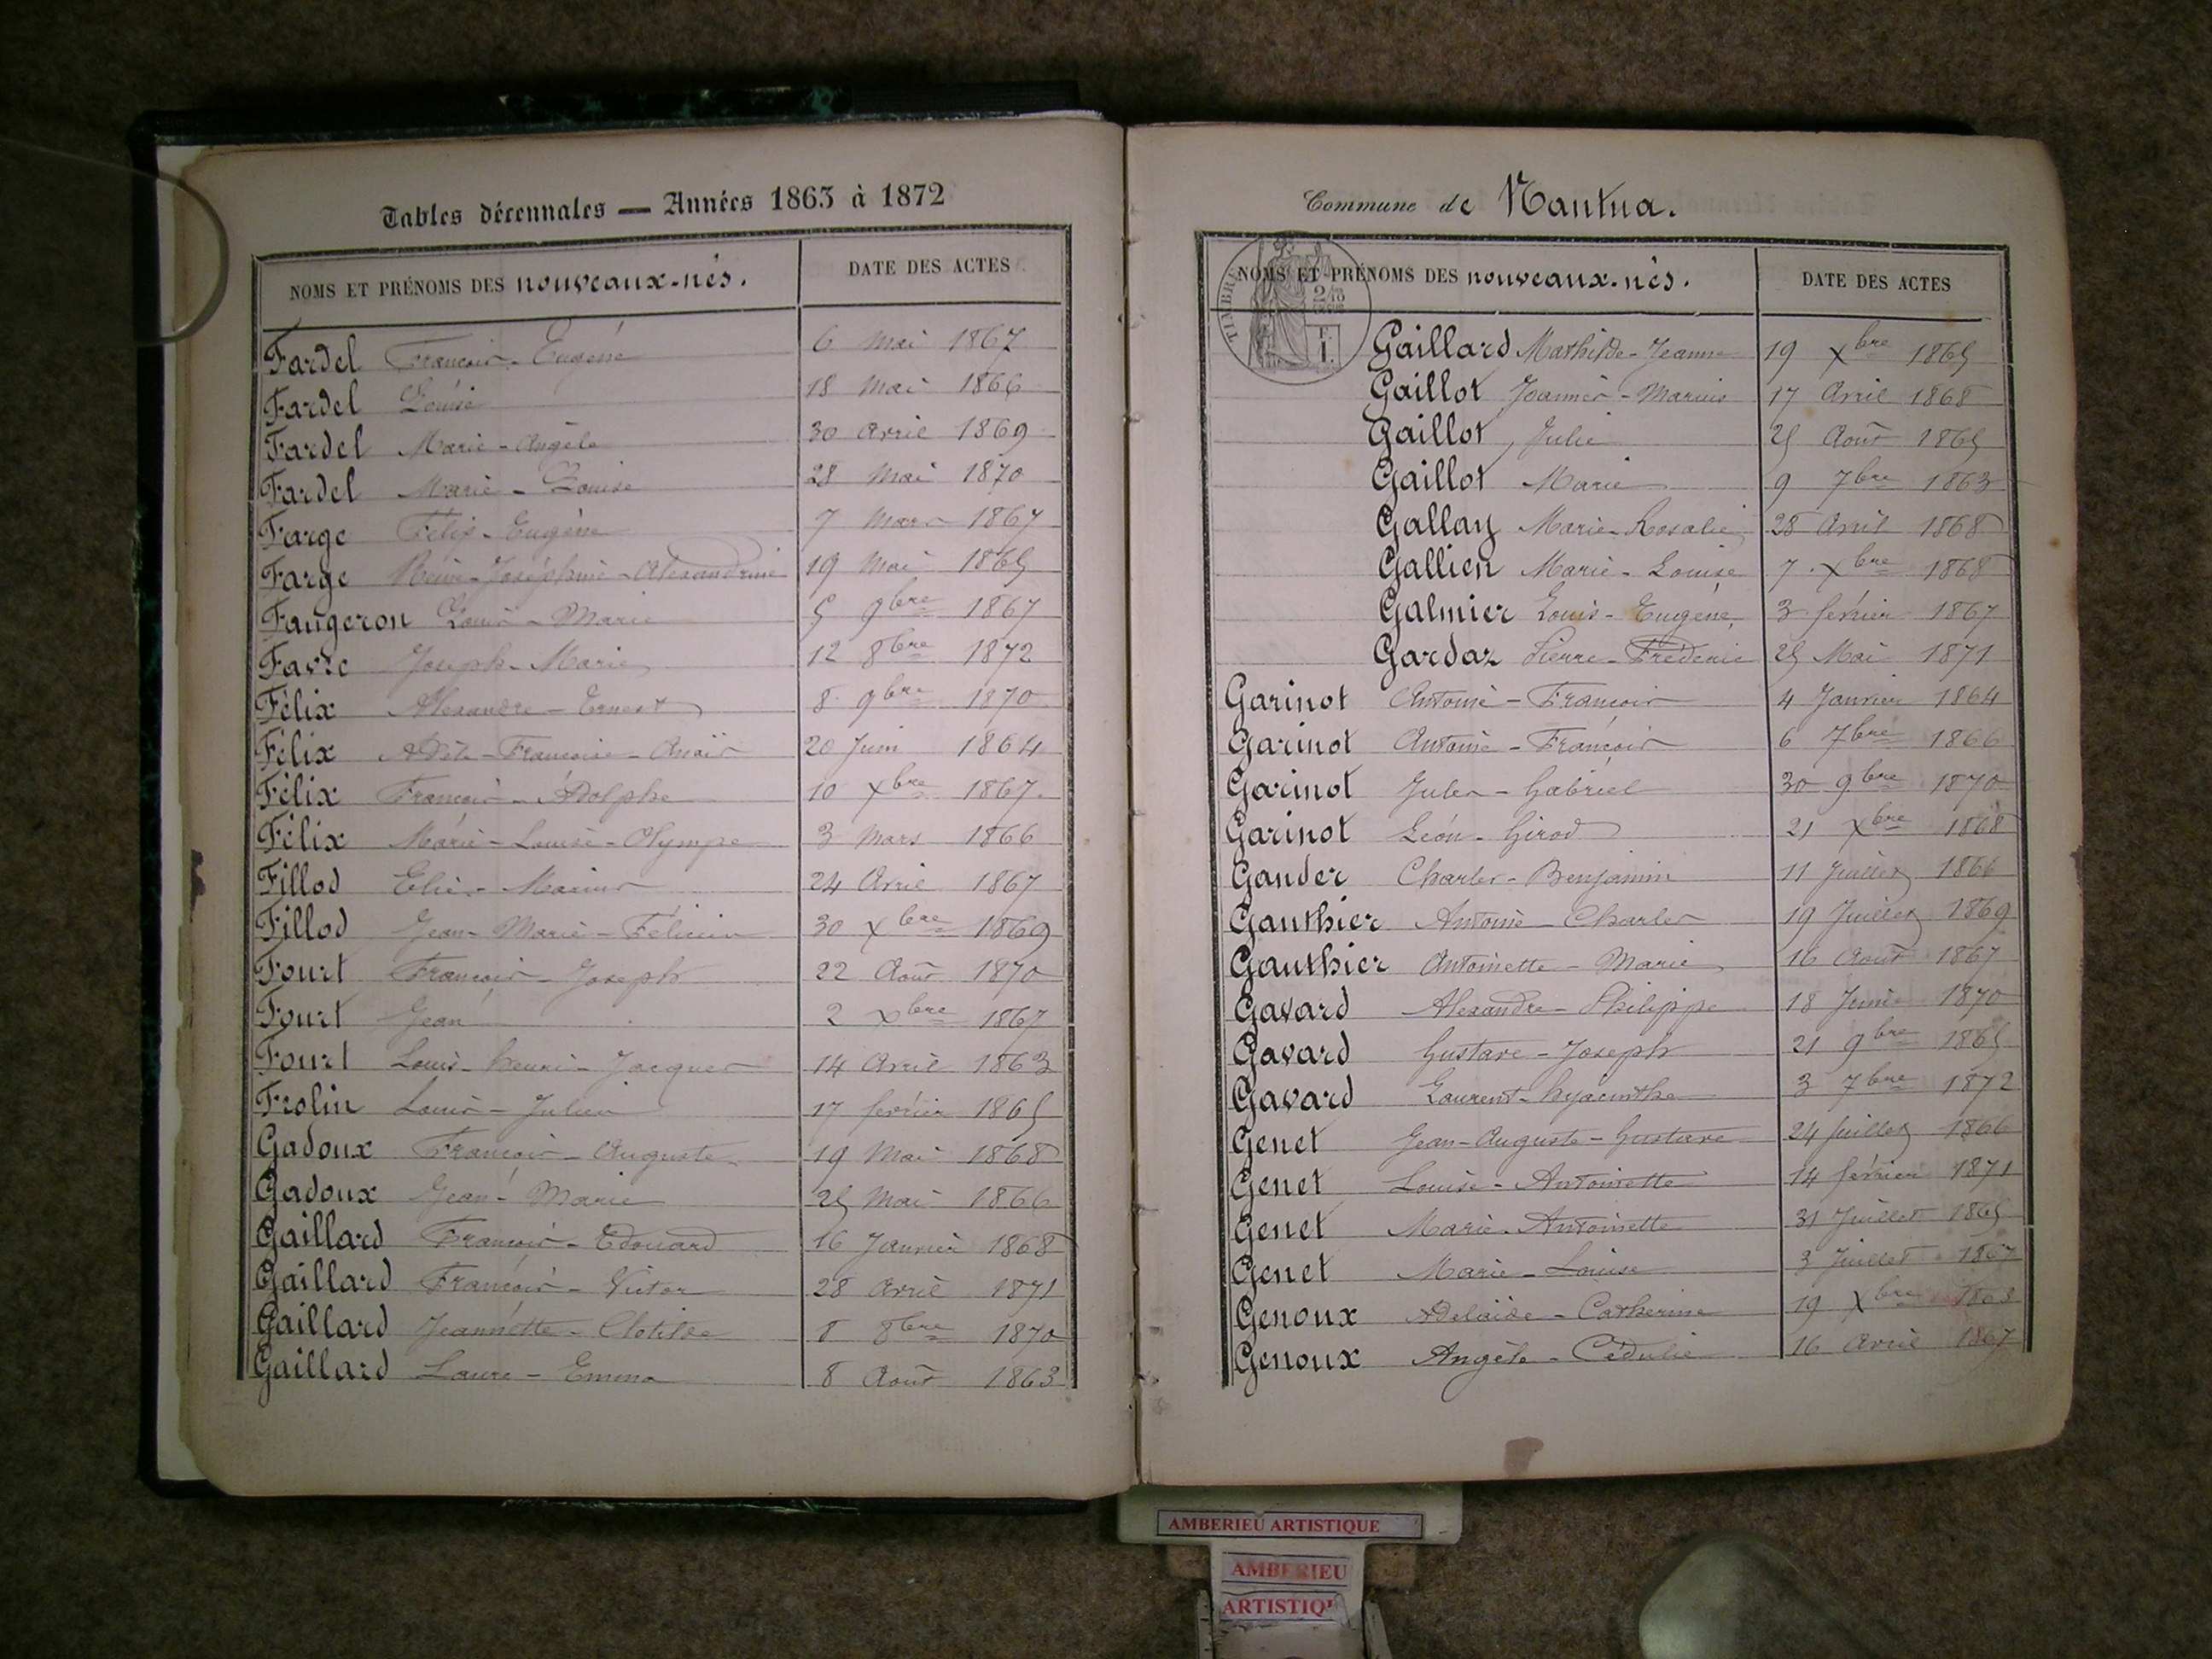 Tables décennales — Années 1863 à 1872
NOMS ET PRÉNOMS DES nouveaux-nés. DATE DES ACTES
Fardel François-Eugène 6 Mai 1867
Fardel Louise 18 Mai 1866
Fardel Marie-Angèle 30 Avril 1869
Fardel Marie-Louise 28 Mai 1870
Farge Félix-Eugène 7 Mars 1867
Farge Joséphine-Alexandrine 19 Mai 1865
Faugeron Louis-Marie 5 9bre 1867
Favre Joseph-Marie 12 8bre 1872
Félix Alexandre-Ernest 8 9bre 1870
Félix Adèle-Françoise-Anaïs 20 Juin 1864
Félix François-Adolphe 10 Xbre 1867
Félix Marie-Louise-Olympe 3 Mars 1866
Fillod Elie-Marius 24 Avril 1867
Fillod Jean-Marie-Félicien 30 Xbre 1869
Fourt François-Joseph 22 Août 1870
Fourt Jean 2 Xbre 1867
Fourt Louis-henri-Jacques 14 Avril 1863
Frolin Louis-Julien 17 février 1865
Gadoux François-Auguste 19 Mai 1868
Gadoux Jean-Marie 25 Mai 1866
Gaillard François-Edouard 16 Janvier 1868
Gaillard François-Victor 28 Avril 1871
Gaillard Jeannette-Clotilde 8 8bre 1870
Gaillard Laure-Emma 8 Août 1863
Commune de Nantua.
NOMS ET PRÉNOMS DES nouveaux-nés. DATE DES ACTES
TIMBRE
Gaillard Mathilde-Jeanne 19 Xbre 1865
Gaillot Joannès-Marius 17 Avril 1868
Gaillot Julie 25 Août 1865
Gaillot Marie 9 7bre 1863
Gallay Marie-Rosalie 28 Avril 1868
Gallien Marie-Louise 7 Xbre 1868
Galmier Louis-Eugène 3 février 1867
Gardaz Pierre-Frédéric 25 Mai 1871
Garinot Antoine-François 4 Janvier 1864
Garinot Antoine-François 6 7bre 1866
Garinot Jules-Gabriel 30 9bre 1870
Garinot Léon-Girod 21 Xbre 1868
Gauder Charles-Benjamin 11 Juillet 1866
Gauthier Antoine-Charles 19 Juillet 1869
Gauthier Antoinette-Marie 16 Août 1867
Gavard Alexandre-Philippe 18 Juin 1870
Gavard Gustave-Joseph 21 9bre 1865
Gavard Laurent-hyacinthe 3 7bre 1872
Genet Jean-Auguste-Gustave 24 Juillet 1866
Genet Louise-Antoinette 14 février 1871
Genet Marie-Antoinette 31 Juillet 1865
Genet Marie-Louise 3 Juillet 1867
Genoux Adélaïde-Catherine 19 Xbre 1863
Genoux Angèle-Cédulie 16 Avril 1867
AMBERIEU ARTISTIQUE
AMBERIEU
ARTISTIQU